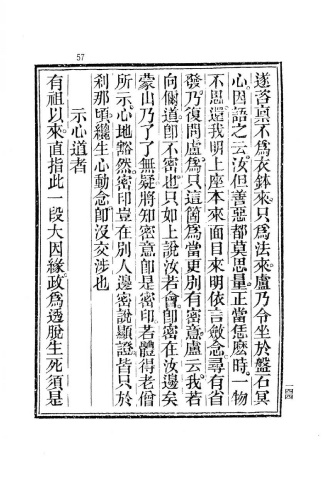 57
遂咨稟不爲衣鉢來只爲法來盧乃令坐於盤石冥
心因語之云汝但善惡都莫思量正當恁麽時一物
不思還我明上座本來面目來明依言斂念尋有省
發乃復問盧爲只這箇爲當更別有密意盧云我若
向儞道卽不密也只如上說汝若會卽密在汝邊矣
蒙山乃了了無疑將知密意卽是密印若體得老僧
所示心地豁然密印豈在別人邊密說顯證皆只於
刹那頃纔生心動念卽沒交涉也
示心道者
有祖以來直指此一段大因緣政爲透脫生死須是
一四四